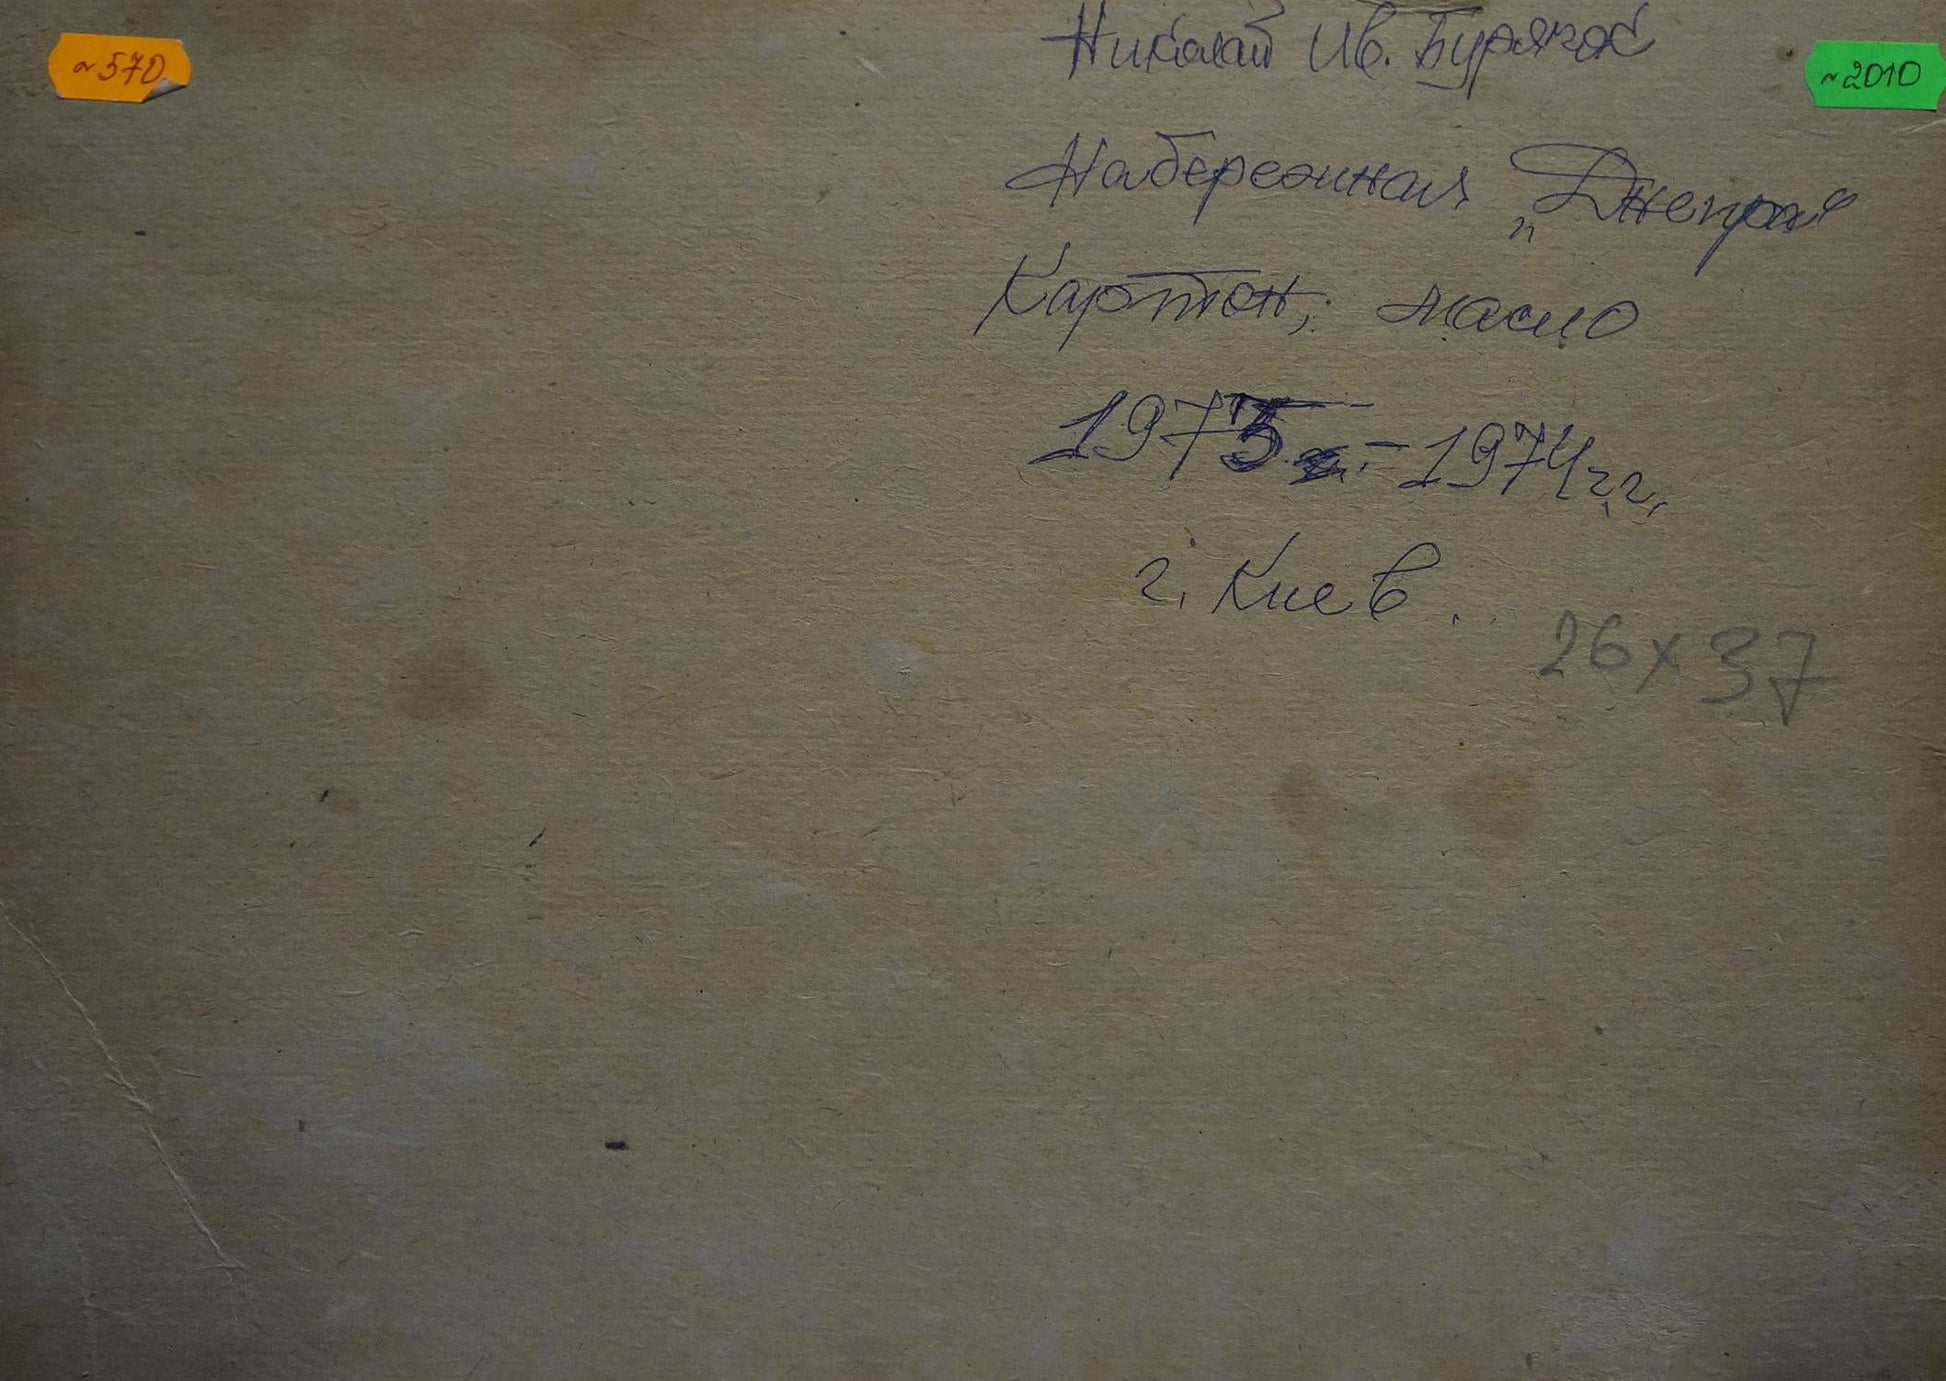 ~570
~2010
Николай Ив. Буряк
Набережная „Днепра“
Картон; масло
1973 - 1974 г.г.
г. Киев.
26х37